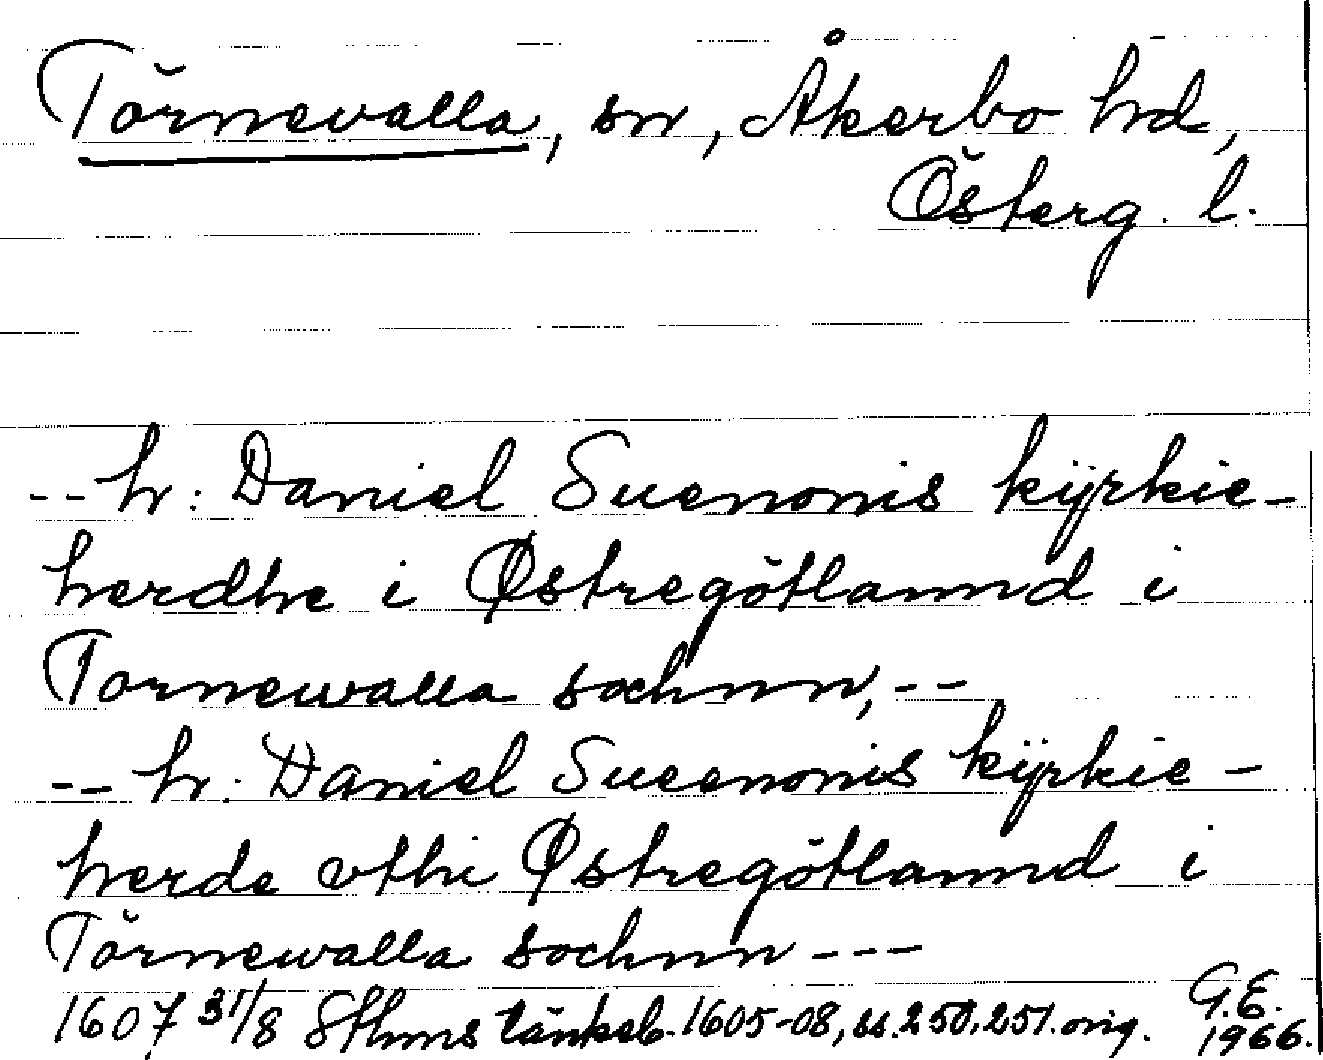 Törnevalla, sn, Åkerbo hd,
Österg. l.
-- hr: Daniel Suenonis kÿrkie-
herdhe i Østregötlannd i
Tornewalla sochnn, --
-- hr: Daniel Sueenonis kÿrkie-
herde vthi Østregötlannd i
Törnewalla sochnn ---
1607 31/8 Sthms tänkeb. 1605-08, ss. 250, 251. orig.
G.E.
1966.